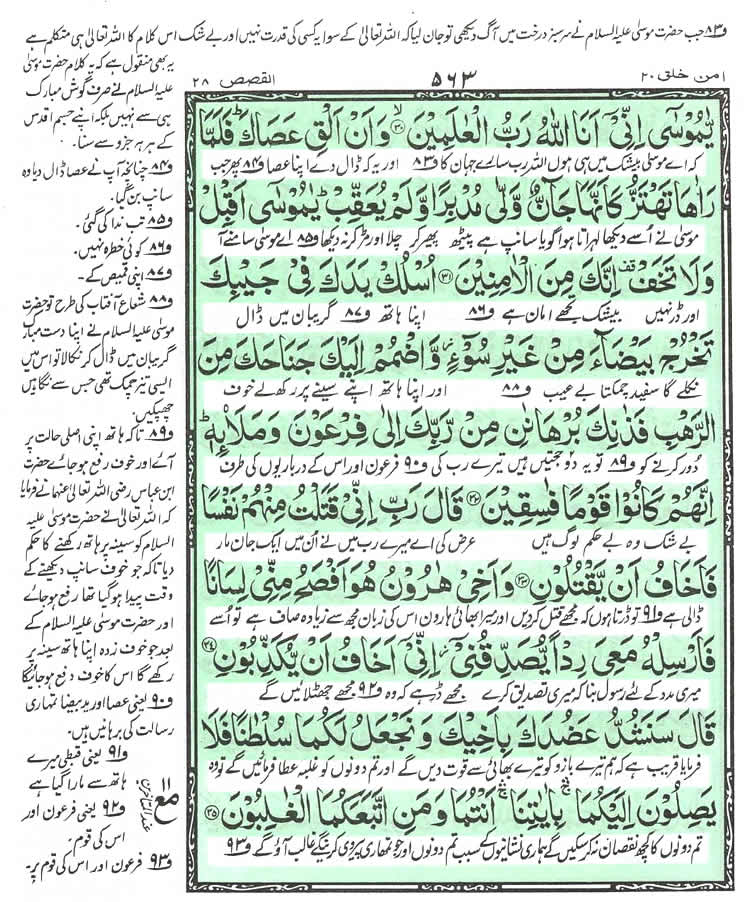 و۸۳ جب حضرت موسیٰ علیہ السلام نے سرسبز درخت میں آگ دیکھی تو جان لیا کہ اللہ تعالیٰ کے سوا یہ کسی کی قدرت نہیں اور بے شک اس کلام کا اللہ تعالیٰ ہی متکلم ہے
امن خلق ۲۰
۵۶۳
القصص ۲۸
یٰمُوْسٰۤی اِنِّیْۤ اَنَا اللّٰهُ رَبُّ الْعٰلَمِیْنَ ﴿۳۰﴾ وَ اَنْ اَلْقِ عَصَاكَ فَلَمَّا
کہ اے موسیٰ بیشک میں ہی ہوں اللہ رب سارے جہان کا و۸۳ اور یہ کہ ڈال دے اپنا عصا و۸۴ پھر جب
رَاٰهَا تَهْتَزُّ كَاَنَّهَا جَآنٌّ وَّلّٰی مُدْبِرًا وَّ لَمْ یُعَقِّبْ یٰمُوْسٰۤی اَقْبِلْ
موسیٰ نے اسے دیکھا لہراتا ہوا گویا سانپ ہے پیٹھ پھیر کر چلا اور مڑ کر نہ دیکھا و۸۵ اے موسیٰ سامنے آ
وَ لَا تَخَفْ اِنَّكَ مِنَ الْاٰمِنِیْنَ ﴿۳۱﴾ اُسْلُكْ یَدَكَ فِیْ جَیْبِكَ
اور ڈر نہیں بیشک تجھے امان ہے و۸۶ اپنا ہاتھ و۸۷ گریبان میں ڈال
تَخْرُجْ بَیْضَآءَ مِنْ غَیْرِ سُوْٓءٍ وَّ اضْمُمْ اِلَیْكَ جَنَاحَكَ مِنَ
نکلے گا سفید چمکتا بے عیب و۸۸ اور اپنا ہاتھ اپنے سینے پر رکھ لے خوف
الرَّهْبِ فَذٰنِكَ بُرْهَانٰنِ مِنْ رَّبِّكَ اِلٰی فِرْعَوْنَ وَ مَلَا۠ىِٕهٖ ؕ
دور کرنے کو و۸۹ تو یہ دو حجتیں ہیں تیرے رب کی و۹۰ فرعون اور اس کے درباریوں کی طرف
اِنَّهُمْ كَانُوْا قَوْمًا فٰسِقِیْنَ ﴿۳۲﴾ قَالَ رَبِّ اِنِّیْ قَتَلْتُ مِنْهُمْ نَفْسًا
بے شک وہ بے حکم لوگ ہیں عرض کی اے میرے رب میں نے ان میں ایک جان مار
فَاَخَافُ اَنْ یَّقْتُلُوْنِ ﴿۳۳﴾ وَ اَخِیْ هٰرُوْنُ هُوَ اَفْصَحُ مِنِّیْ لِسَانًا
ڈالی ہے و۹۱ تو ڈرتا ہوں کہ مجھے قتل کردیں اور میرا بھائی ہارون اس کی زبان مجھ سے زیادہ صاف ہے تو اُسے
فَاَرْسِلْهُ مَعِیَ رِدْاً یُّصَدِّقُنِیْۤ اِنِّیْۤ اَخَافُ اَنْ یُّكَذِّبُوْنِ ﴿۳۴﴾
میری مدد کے لئے رسول بنا کہ میری تصدیق کرے مجھے ڈر ہے کہ وہ و۹۲ مجھے جھٹلائیں گے
قَالَ سَنَشُدُّ عَضُدَكَ بِاَخِیْكَ وَ نَجْعَلُ لَكُمَا سُلْطٰنًا فَلَا
فرمایا قریب ہے کہ ہم تیرے بازو کو تیرے بھائی سے قوت دیں گے اور تم دونوں کو غلبہ عطا فرمائیں گے تو وہ
یَصِلُوْنَ اِلَیْكُمَا بِاٰیٰتِنَاۤ اَنْتُمَا وَ مَنِ اتَّبَعَكُمَا الْغٰلِبُوْنَ ﴿۳۵﴾
تم دونوں کا کچھ نقصان نہ کرسکیں گے ہماری نشانیوں کے سبب تم دونوں اور جو تمہاری پیروی کریں گے غالب آؤ گے و۹۳
یہ بھی منقول ہے کہ یہ کلام حضرت موسیٰ
علیہ السلام نے صرف گوش مبارک
ہی سے نہیں بلکہ اپنے جسم اقدس
کے ہر ہر جزو سے سنا۔
و۸۴ چنانچہ آپ نے عصا ڈال دیا وہ
سانپ بن گیا۔
و۸۵ تب ندا کی گئی۔
و۸۶ کوئی خطرہ نہیں۔
و۸۷ اپنی قمیص کے۔
و۸۸ شعاع آفتاب کی طرح تو حضرت
موسیٰ علیہ السلام نے اپنا دست مبارک
گریبان میں ڈال کر نکالا تو اس میں
ایسی تیز چمک تھی جس سے نگاہیں
جھپکیں۔
و۸۹ تاکہ ہاتھ اپنی اصلی حالت پر
آئے اور خوف رفع ہو جائے حضرت
ابن عباس رضی اللہ تعالیٰ عنہما نے فرمایا
کہ اللہ تعالیٰ نے حضرت موسیٰ علیہ
السلام کو سینہ پر ہاتھ رکھنے کا حکم
دیا تاکہ جو خوف سانپ دیکھنے کے
وقت پیدا ہو گیا تھا رفع ہو جائے
اور حضرت موسیٰ علیہ السلام کے
بعد جو خوف زدہ اپنا ہاتھ سینہ پر
رکھے گا اس کا خوف دفع ہو جائیگا
و۹۰ یعنی عصا اور ید بیضا تمہاری
رسالت کی برہانیں ہیں۔
و۹۱ یعنی قبطی میرے
ہاتھ سے مارا گیا ہے
و۹۲ یعنی فرعون اور
اس کی قوم۔
و۹۳ فرعون اور اس کی قوم پر۔